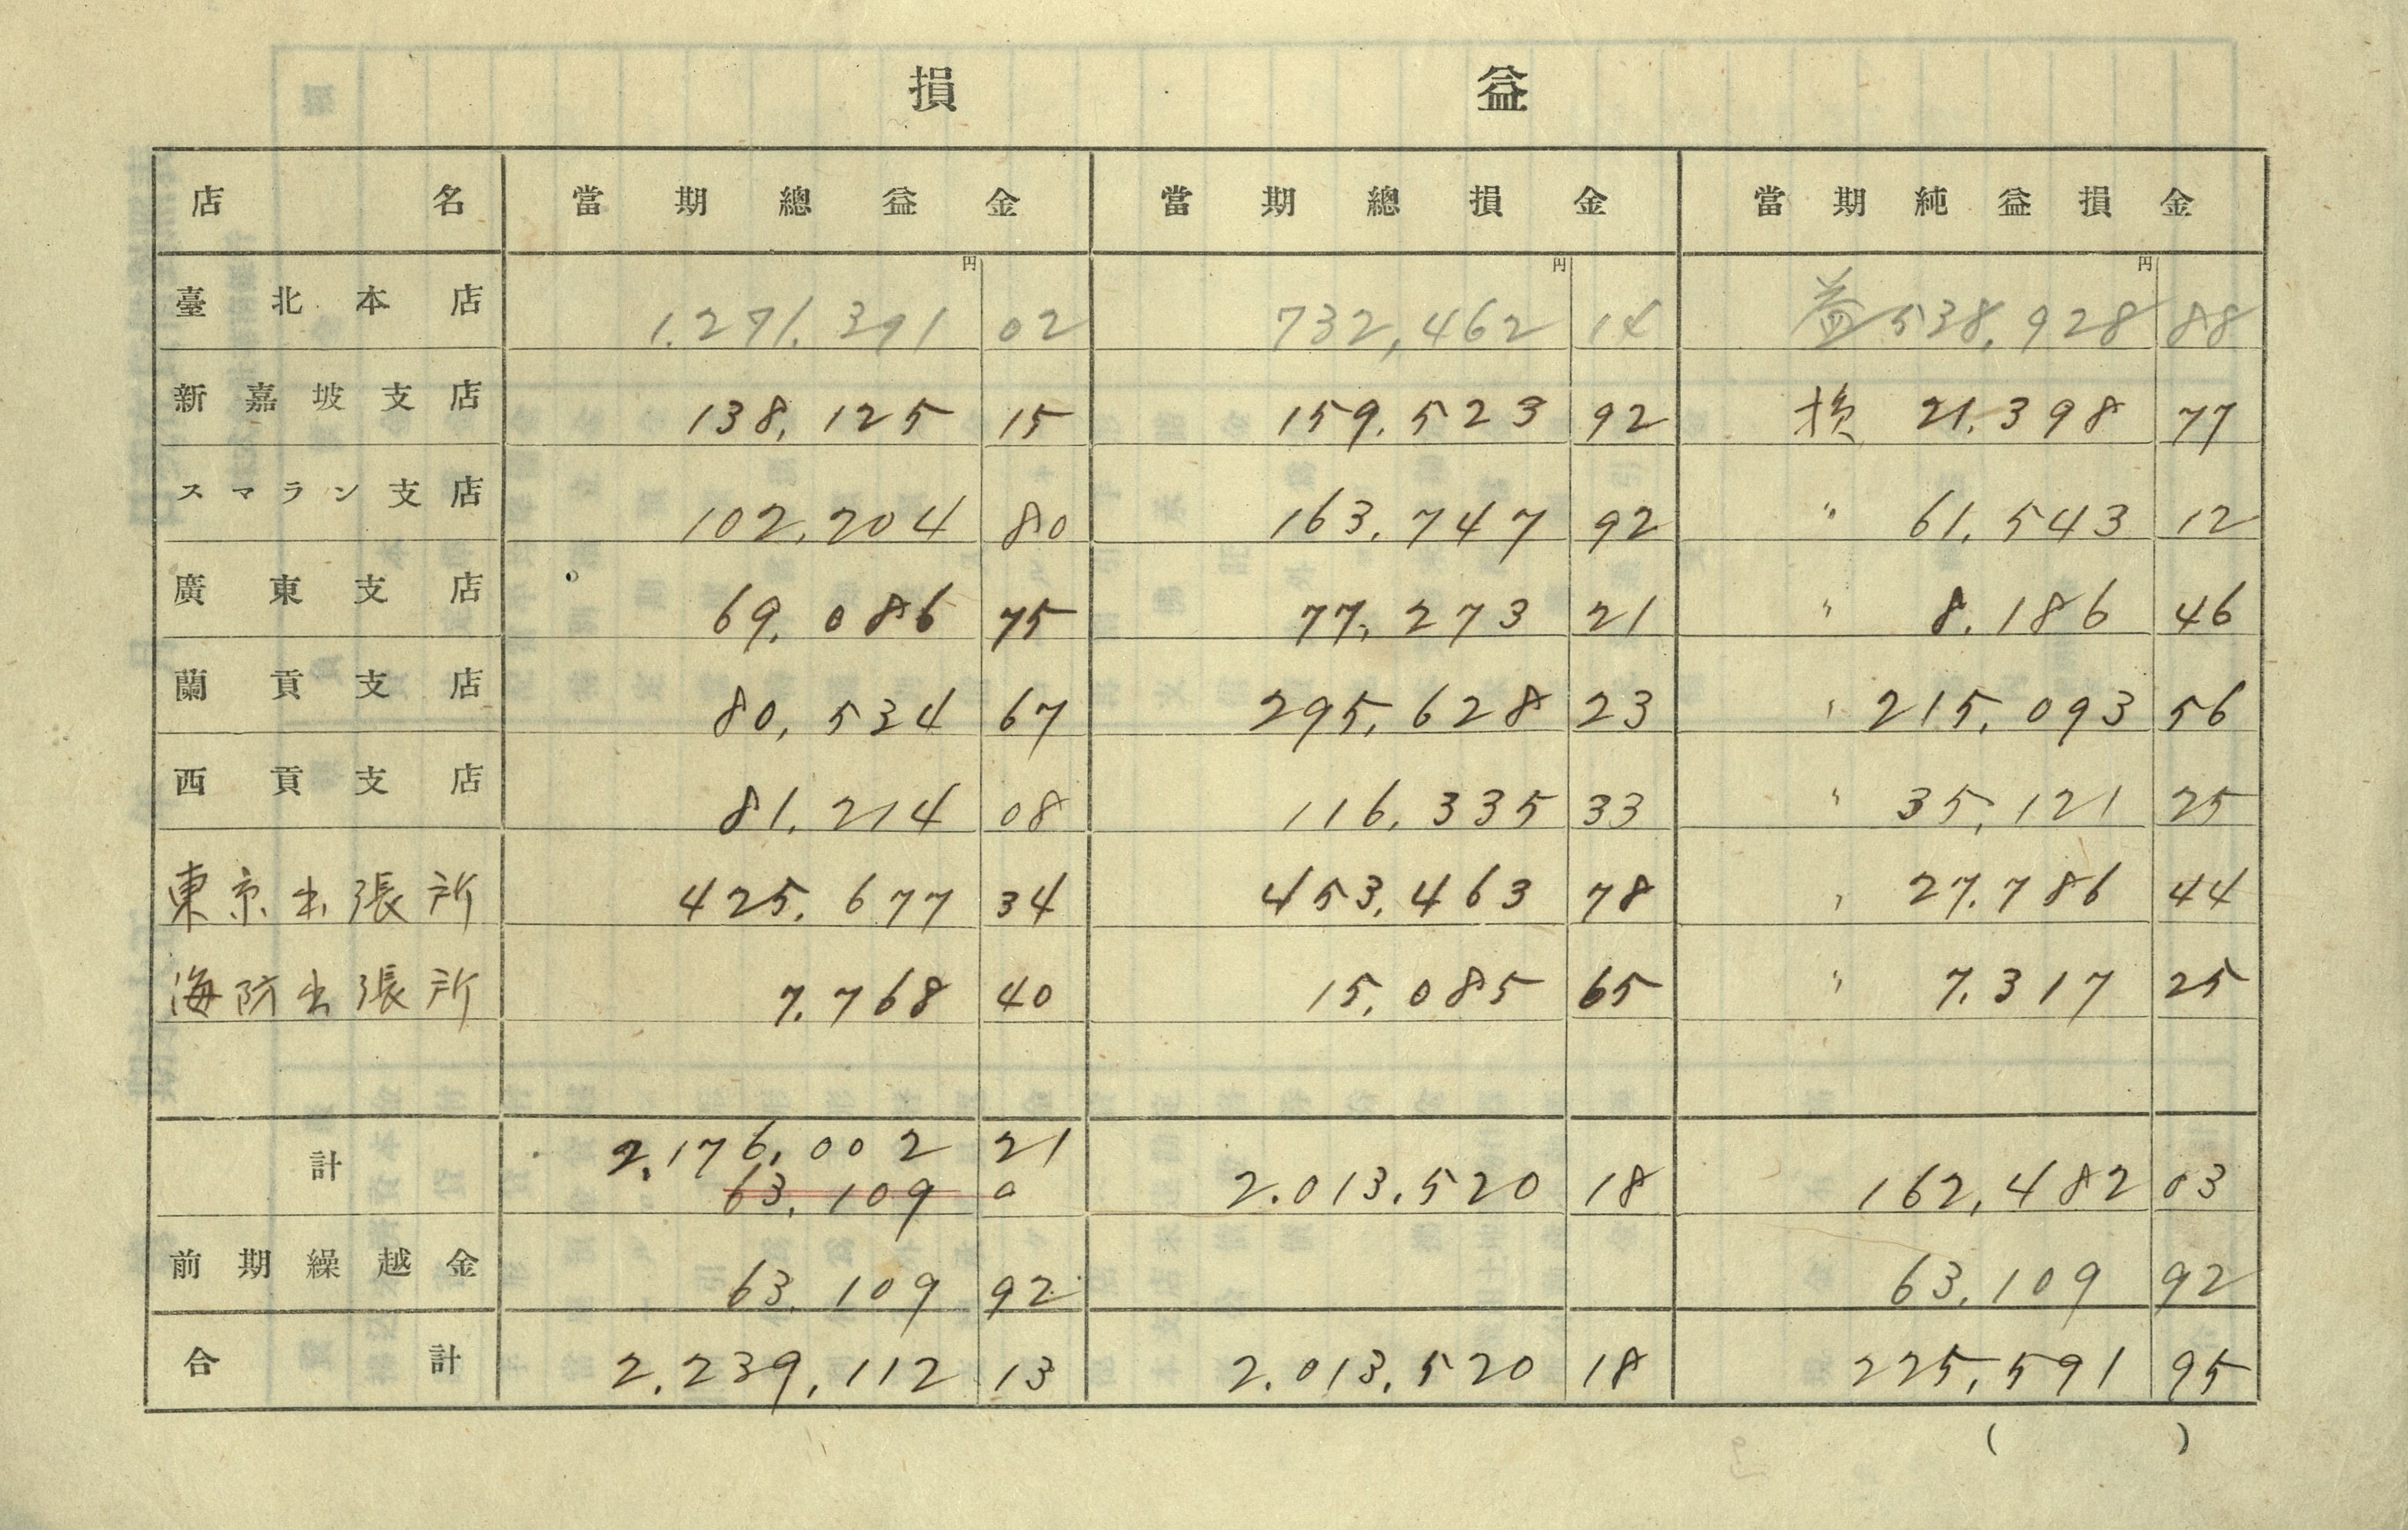 損益
店名 當期總益金 當期總損金 當期純益損金
円 円 円
臺北本店 1.271.391 02 732,462 14 益 538,928 88
新嘉坡支店 138,125 15 159.523 92 損 21.398 77
スマラン支店 102,204 80 163.747 92 〃 61.543 12
廣東支店 69.086 75 77,273 21 〃 8.186 46
蘭貢支店 80,534 67 295,628 23 〃 215,093 56
西貢支店 81.214 08 116.335 33 〃 35,121 25
東京出張所 425.677 34 453.463 78 〃 27.786 44
海防出張所 7.768 40 15,085 65 〃 7.317 25
計 2,176,002 21 2.013.520 18 162,482 03
63,109 0
前期繰越金 63.109 92 63,109 92
合計 2.239,112 13 2.013.520 18 225,591 95
( )